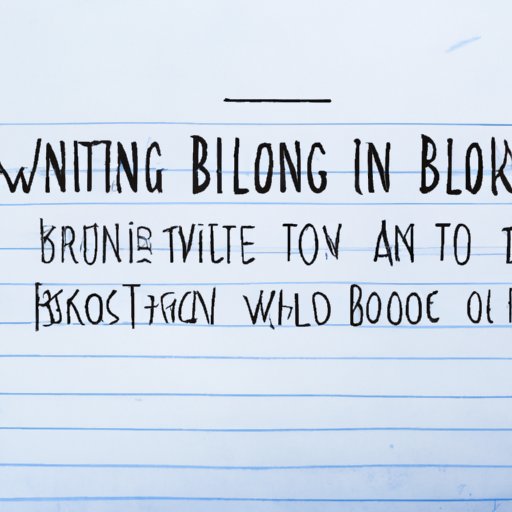 WNITTNG BILONG IN BLOK
BRUNIB TVILTE TOV AN TO
WHLD BOOOC OL